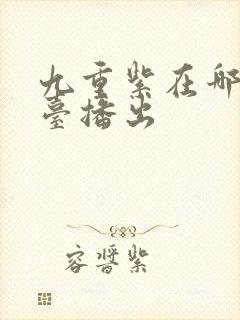 九重紫在哪
臺播出
容晉紫